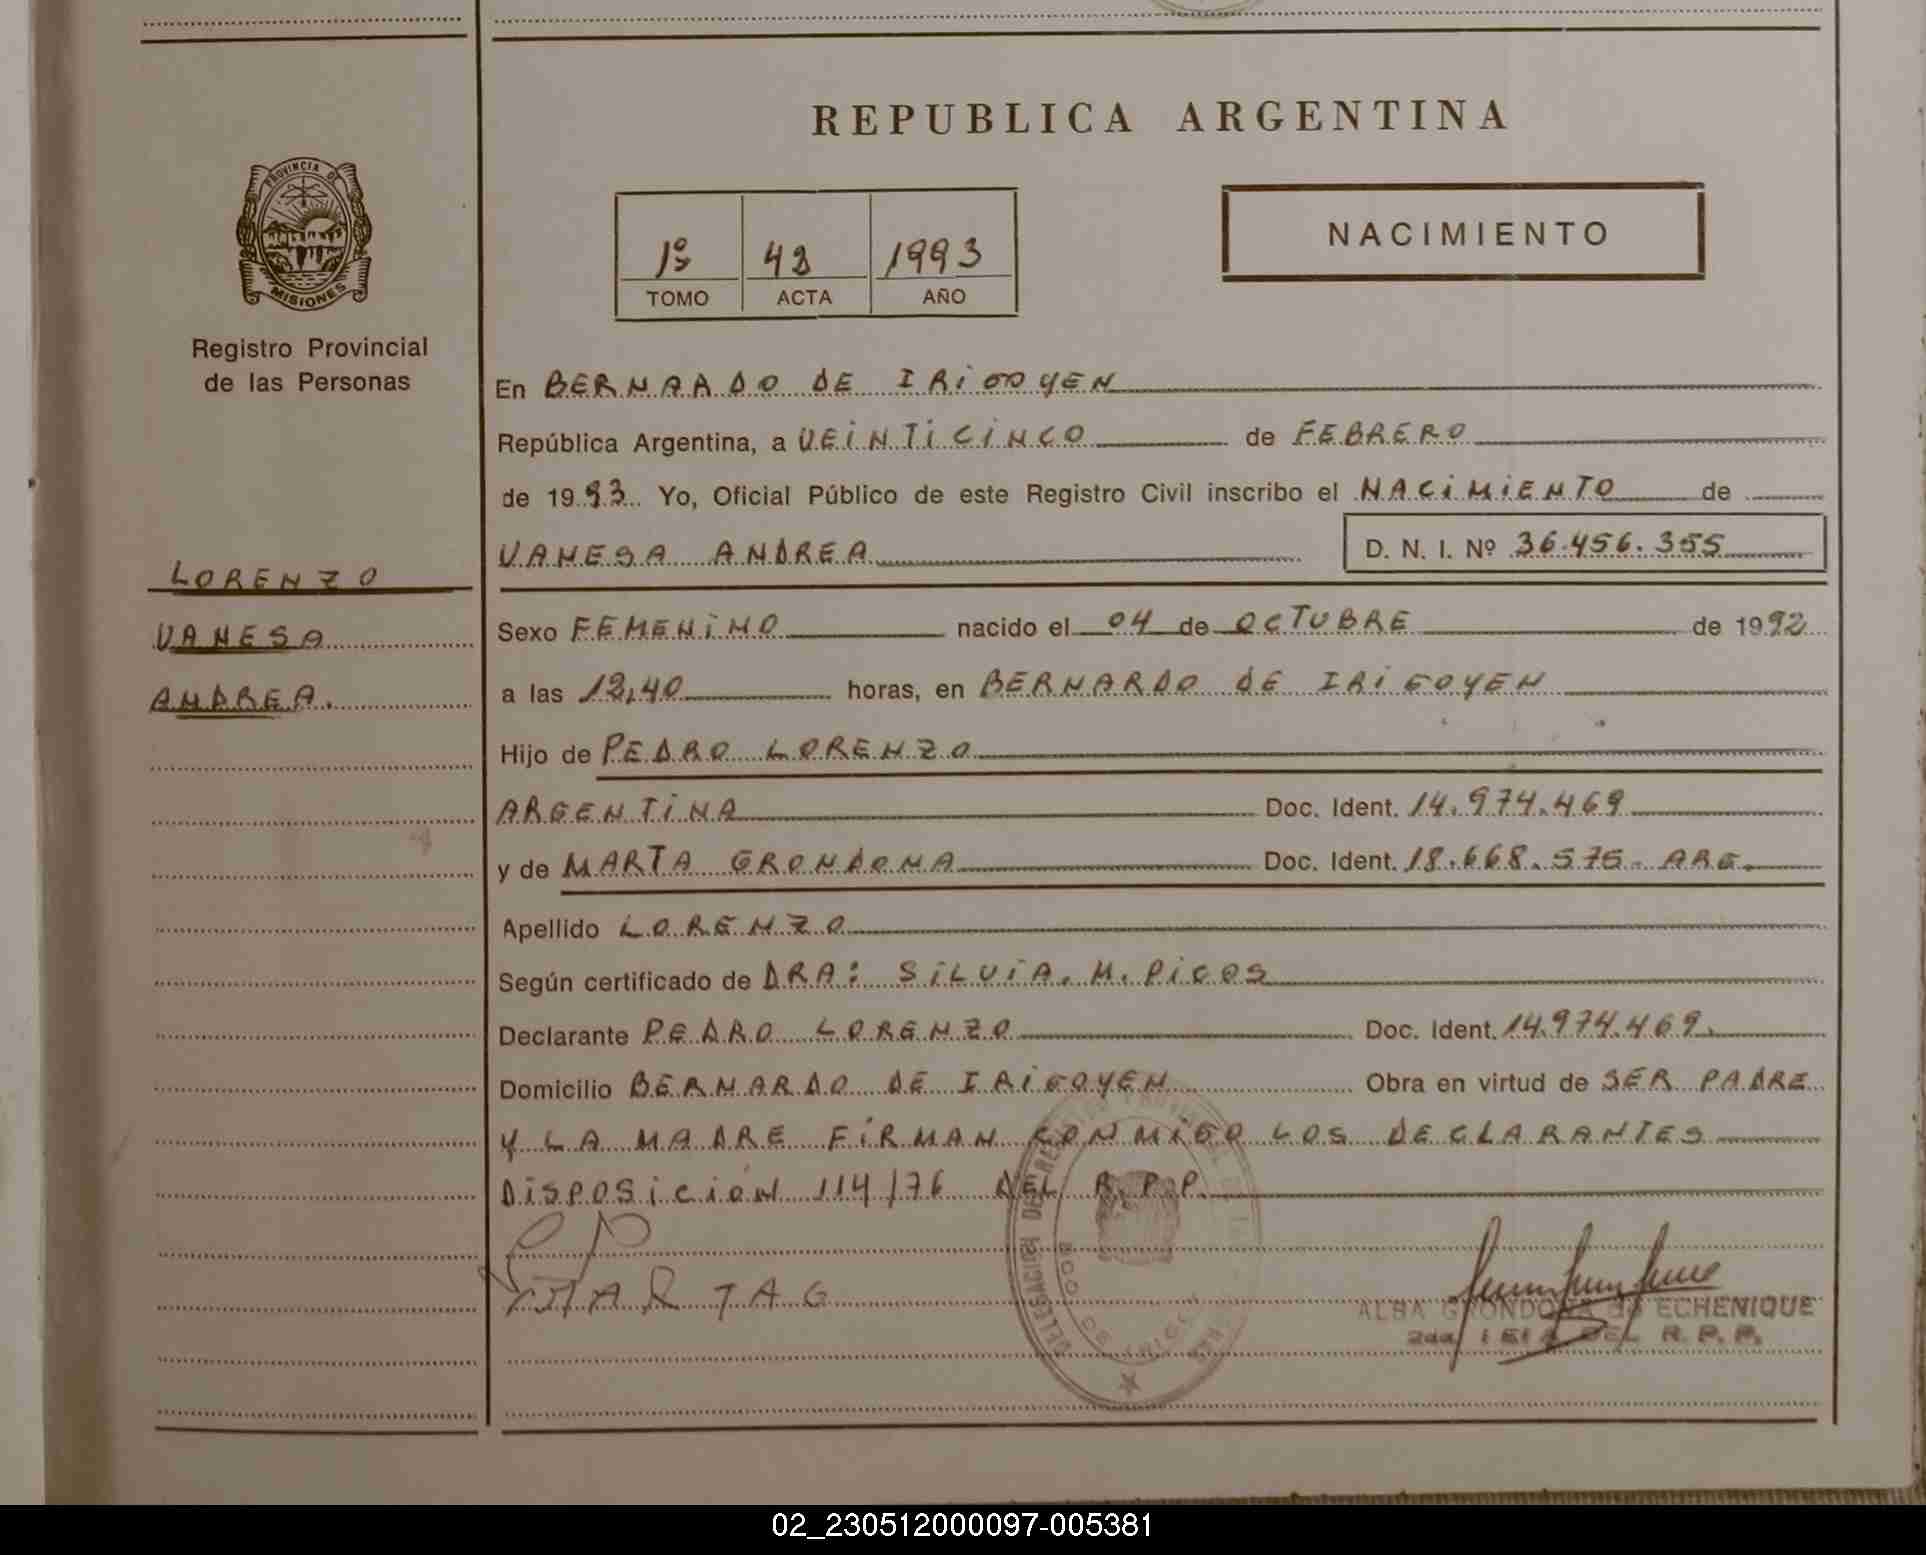 REPUBLICA ARGENTINA
PROVINCIA DE
MISIONES
Registro Provincial
de las Personas
1º
TOMO
42
ACTA
1993
AÑO
NACIMIENTO
En BERNARDO DE IRIGOYEN
República Argentina, a VEINTICINCO de FEBRERO
de 1993. Yo, Oficial Público de este Registro Civil inscribo el NACIMIENTO de
VANESA ANDREA
D. N. I. Nº 36.456.355
LORENZO
VANESA
ANDREA.
Sexo FEMENINO nacido el 04 de OCTUBRE de 1992
a las 12,40 horas, en BERNARDO DE IRIGOYEN
Hijo de PEDRO LORENZO
ARGENTINA Doc. Ident. 14.974.469
y de MARTA GRONDONA Doc. Ident. 18.668.575- ARG.
Apellido LORENZO
Según certificado de DRA: SILVIA. M. PICOS
Declarante PEDRO LORENZO Doc. Ident. 14.974.469.
Domicilio BERNARDO DE IRIGOYEN Obra en virtud de SER PADRE
Y LA MADRE FIRMAN CONMIGO LOS DECLARANTES
DISPOSICIÓN 114/76 DEL R.P.P.
ALBA GRONDONA de ECHENIQUE
DEL R. P. P.
02_230512000097-005381